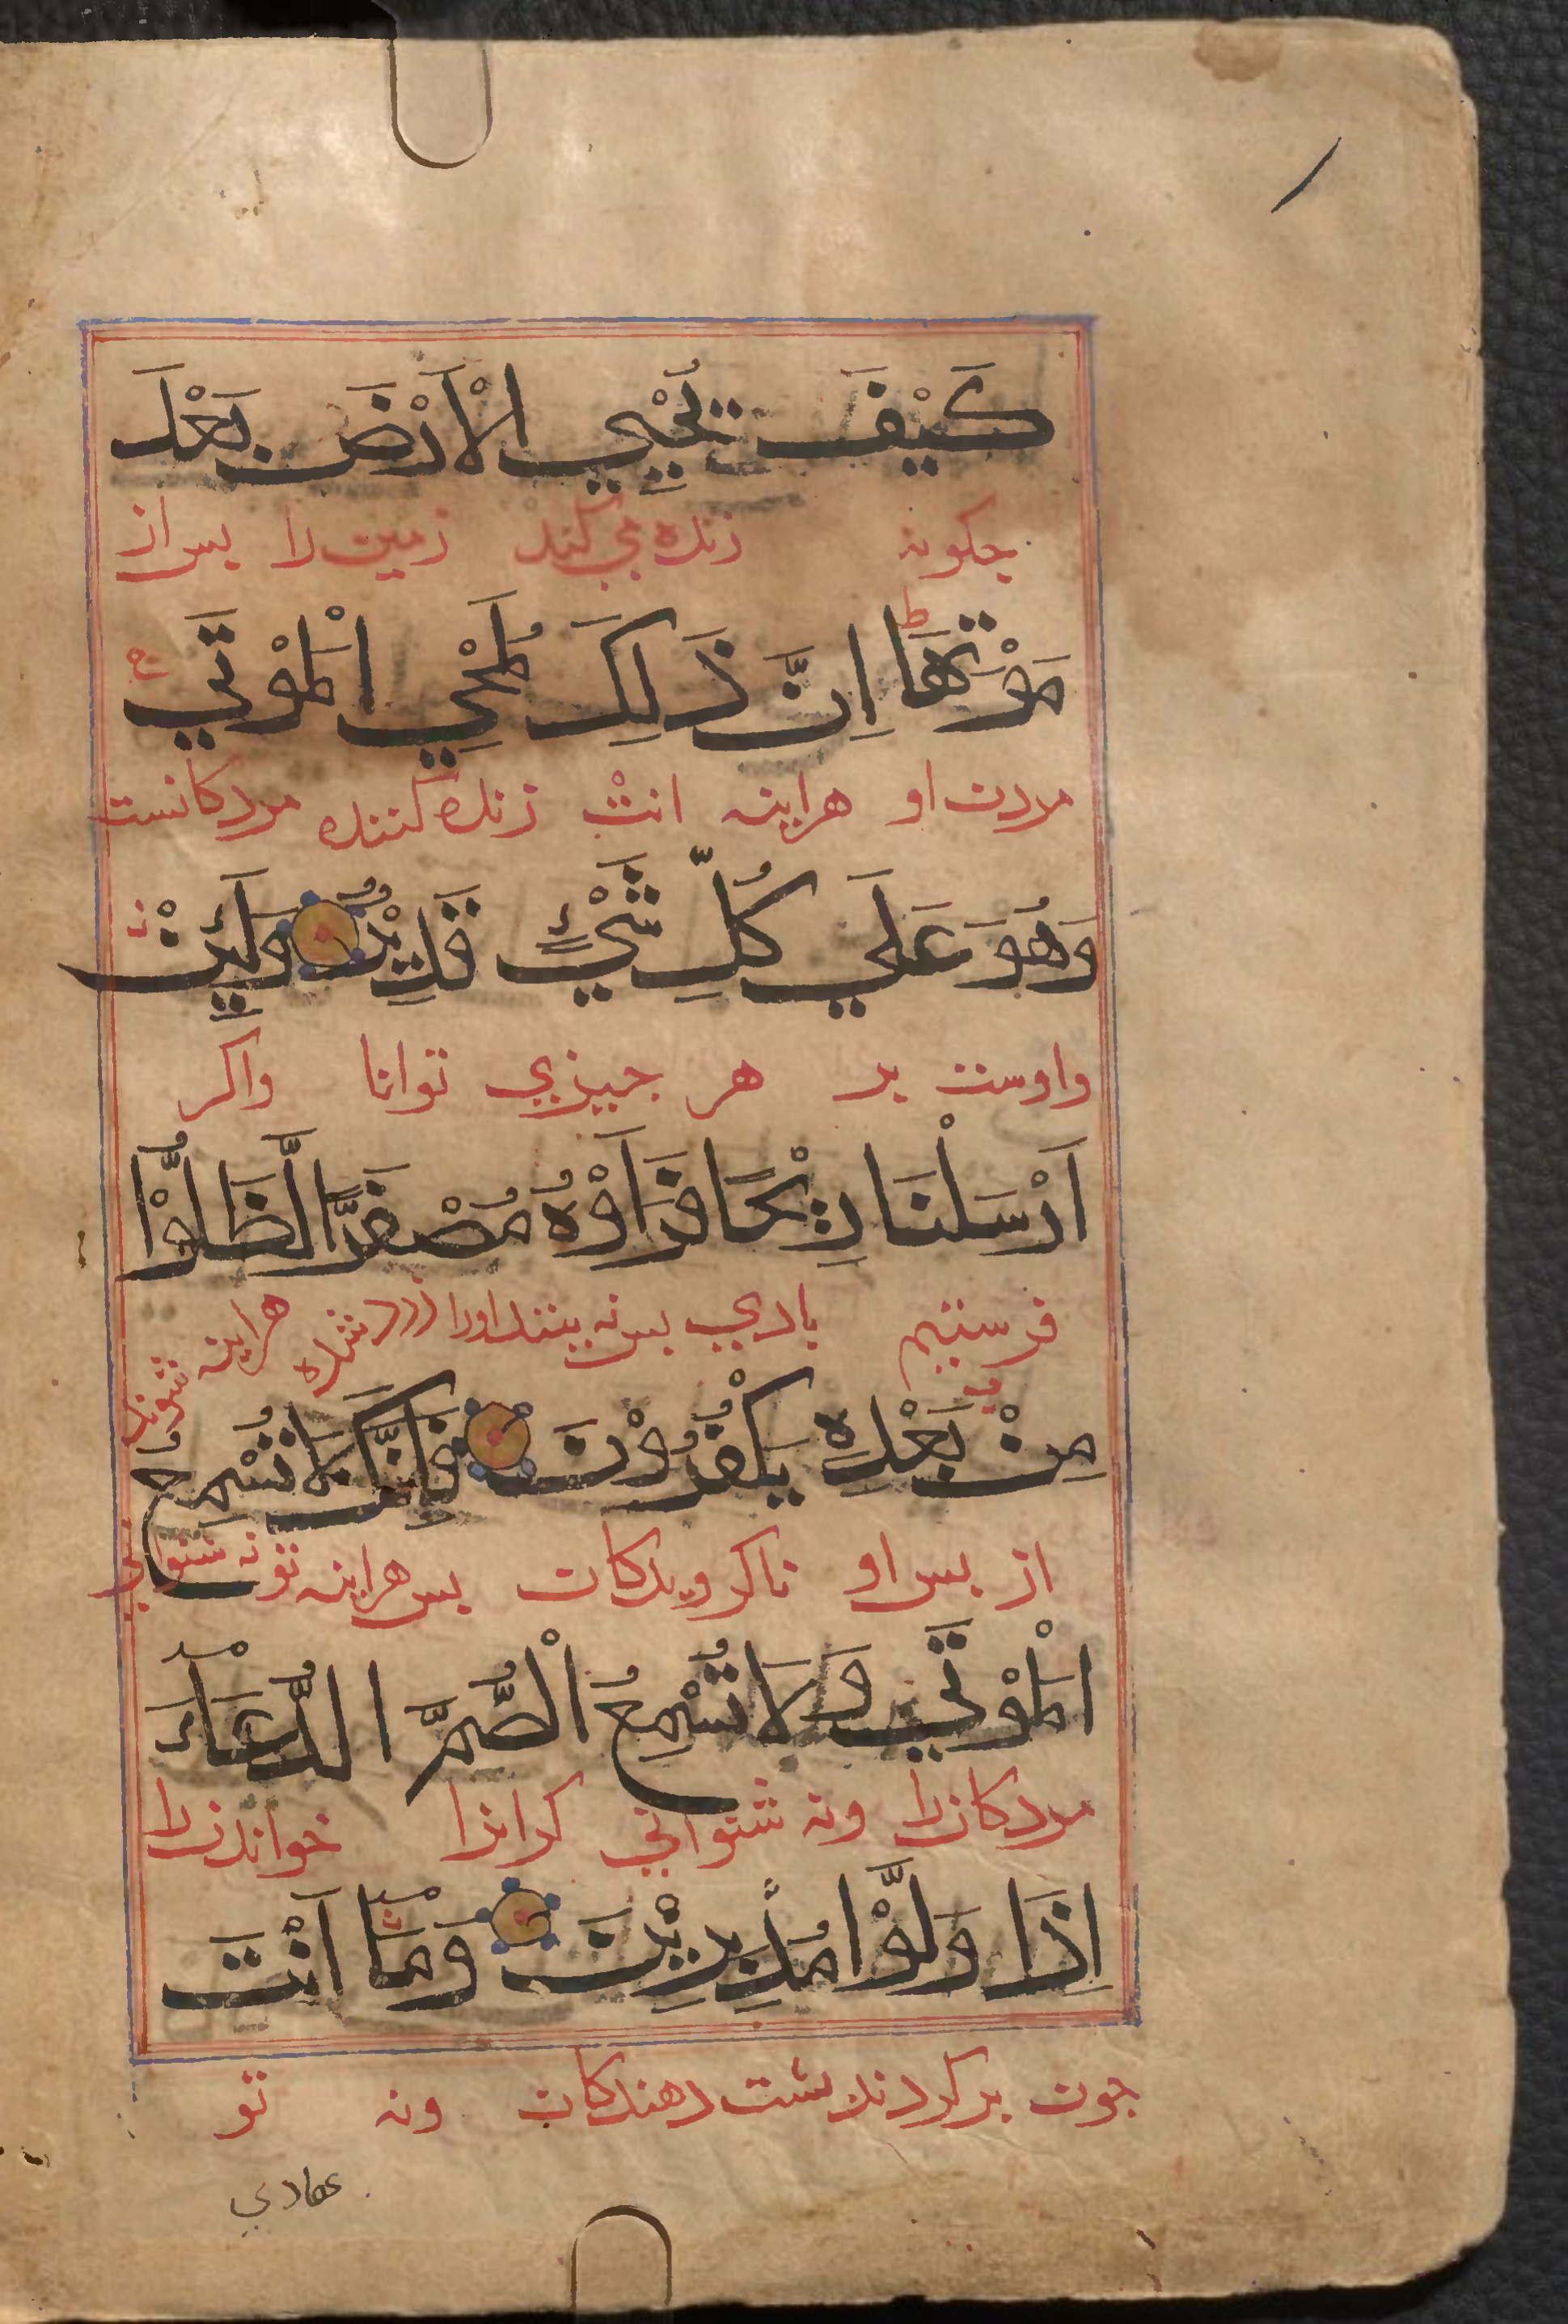 كَيْفَ تُحْيِي الْاَرْضَ بَعْدَ
جكونه زنده مي كند زمين را بس از
مَوْتِهَا ط اِنَّ ذَلِكَ لَمُحْيِ الْمَوْتَي ج
مردن او هراينه انش زنده كننده مردكانست
وَهُوَ عَلَي كُلِّ شَيْءٍ قَدِيْرٌ وَلَئِنْ
واوست بر هر جيزي توانا واكر
اَرْسَلْنَا رِيْحًا فَرَاَوْهُ مُصْفَرًّا لَّظَلُّوْا
فرستيم بادي بس به بينند اورا زرد شده هراينه شوند
مِنْ بَعْدِهِ يَكْفُرُوْنَ فَاِنَّكَ لَا تُسْمِعُ
از بس او ناكرويدكان بس هراينه تو نه شنواني
الْمَوْتَي وَلَا تُسْمِعُ الْصُّمَّ الدُّعَآءَ
مردكانرا ونه شنواني كرانرا خواندنرا
اِذَا وَلَّوْا مُدْبِرِيْنَ وَمَآ اَنْتَ
جون بركردند بشت دهندكان ونه تو
عهادي